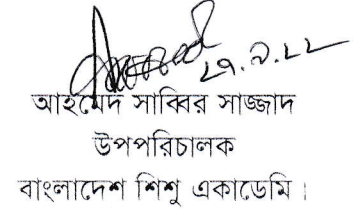 ২৭.৯.২২
আহমেদ সাব্বির সাজ্জাদ
উপপরিচালক
বাংলাদেশ শিশু একাডেমি।